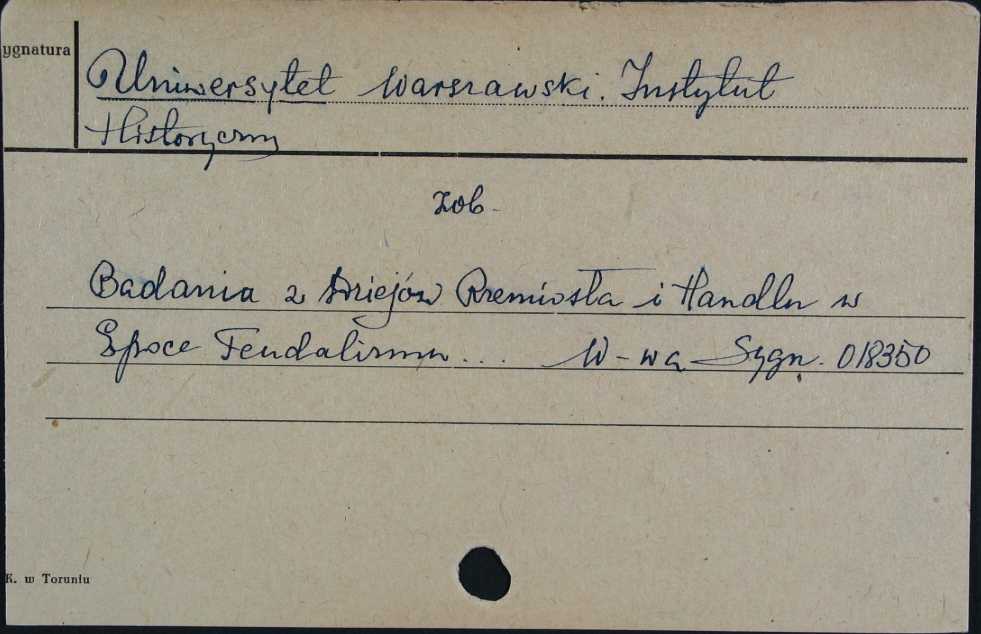 ygnatura
Uniwersytet Warszawski. Instytut
Historyczny
zob.
Badania z Dziejów Rzemiosła i Handlu w
Epoce Feudalizmu... W-wa Sygn. 018350
K. w Toruniu